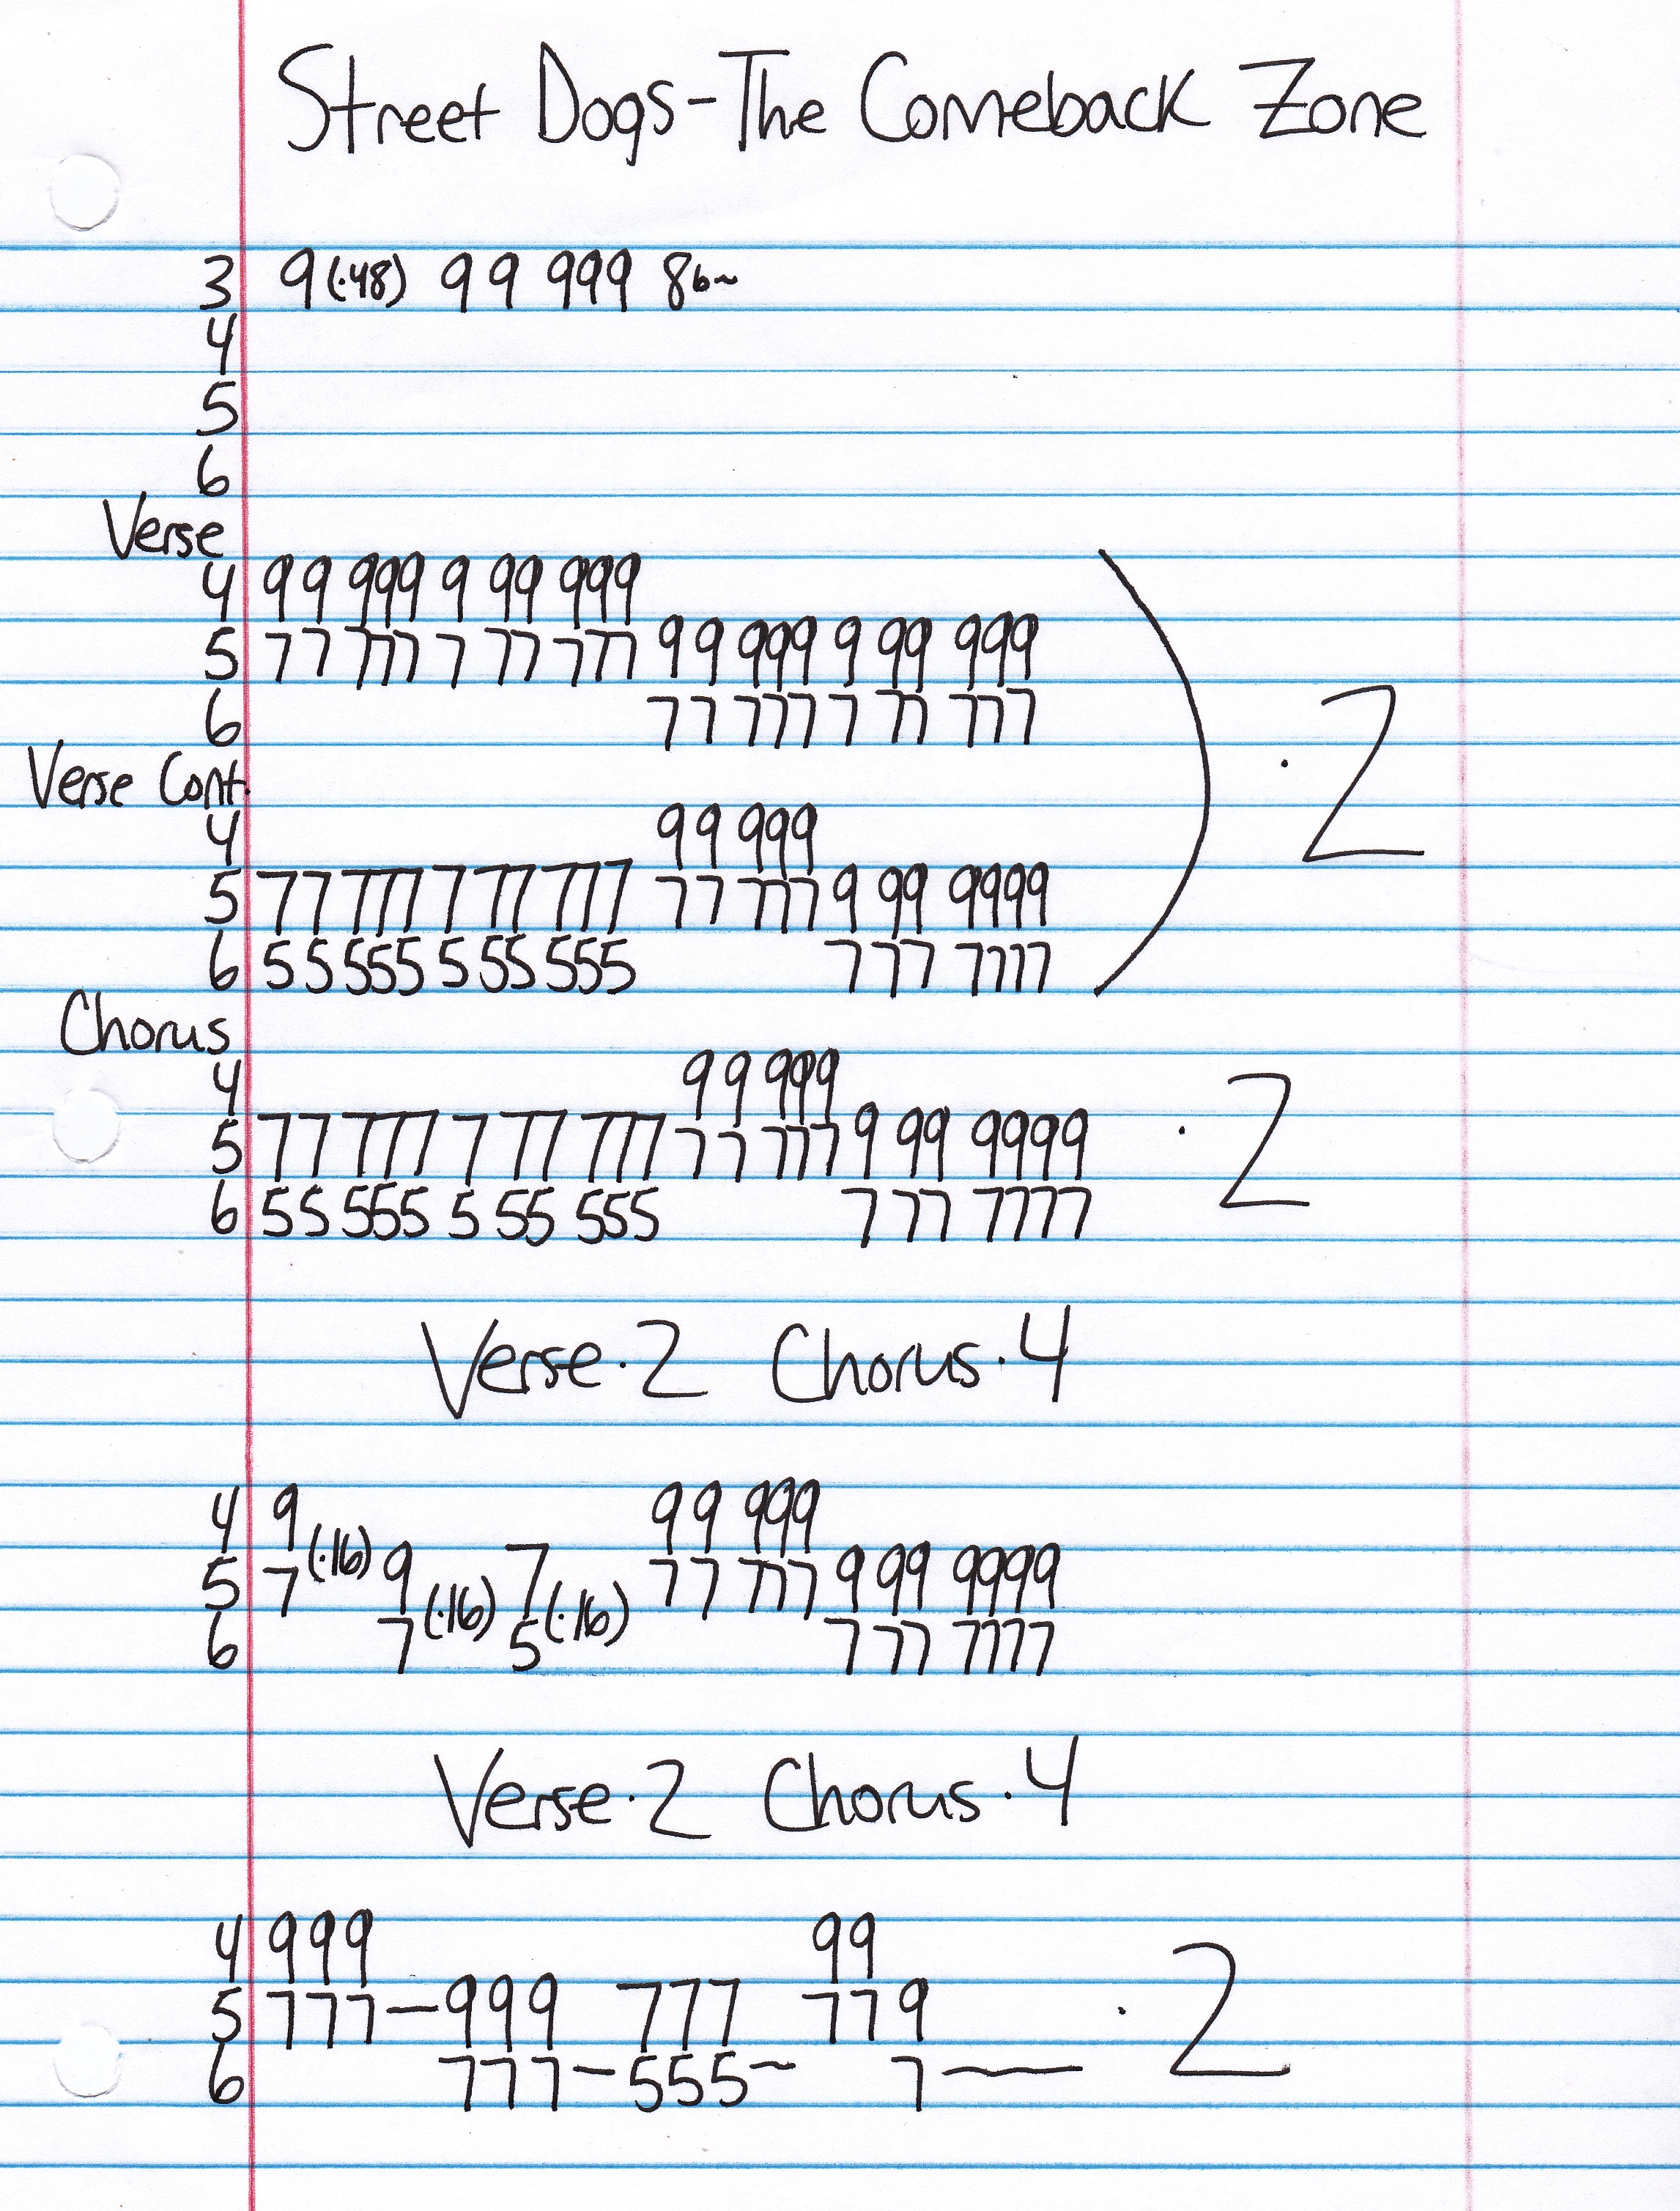 Street Dogs-The Comeback Zone
3 9(·48) 99 999 86~
4
5
6
Verse
4 99 999 9 99 999
5 77 777 7 77 777 99 999 9 99 999
6 77 777 7 77 777
·2
Verse Cont.
4 99 999
5 77 777 7 77 777 77 777 9 99 9999
6 55 555 5 55 555 7 77 7777
Chorus
4 99 999
5 77 777 7 77 777 77 777 9 99 9999 ·2
6 55 555 5 55 555 7 77 7777
Verse·2 Chorus·4
4 9 99 999
5 7(·16) 9 7 77 777 9 99 9999
6 7(·16) 5(·16) 7 77 7777
Verse·2 Chorus·4
4 999 99
5 777—999 777 779 ·2
6 777—555~ 7——